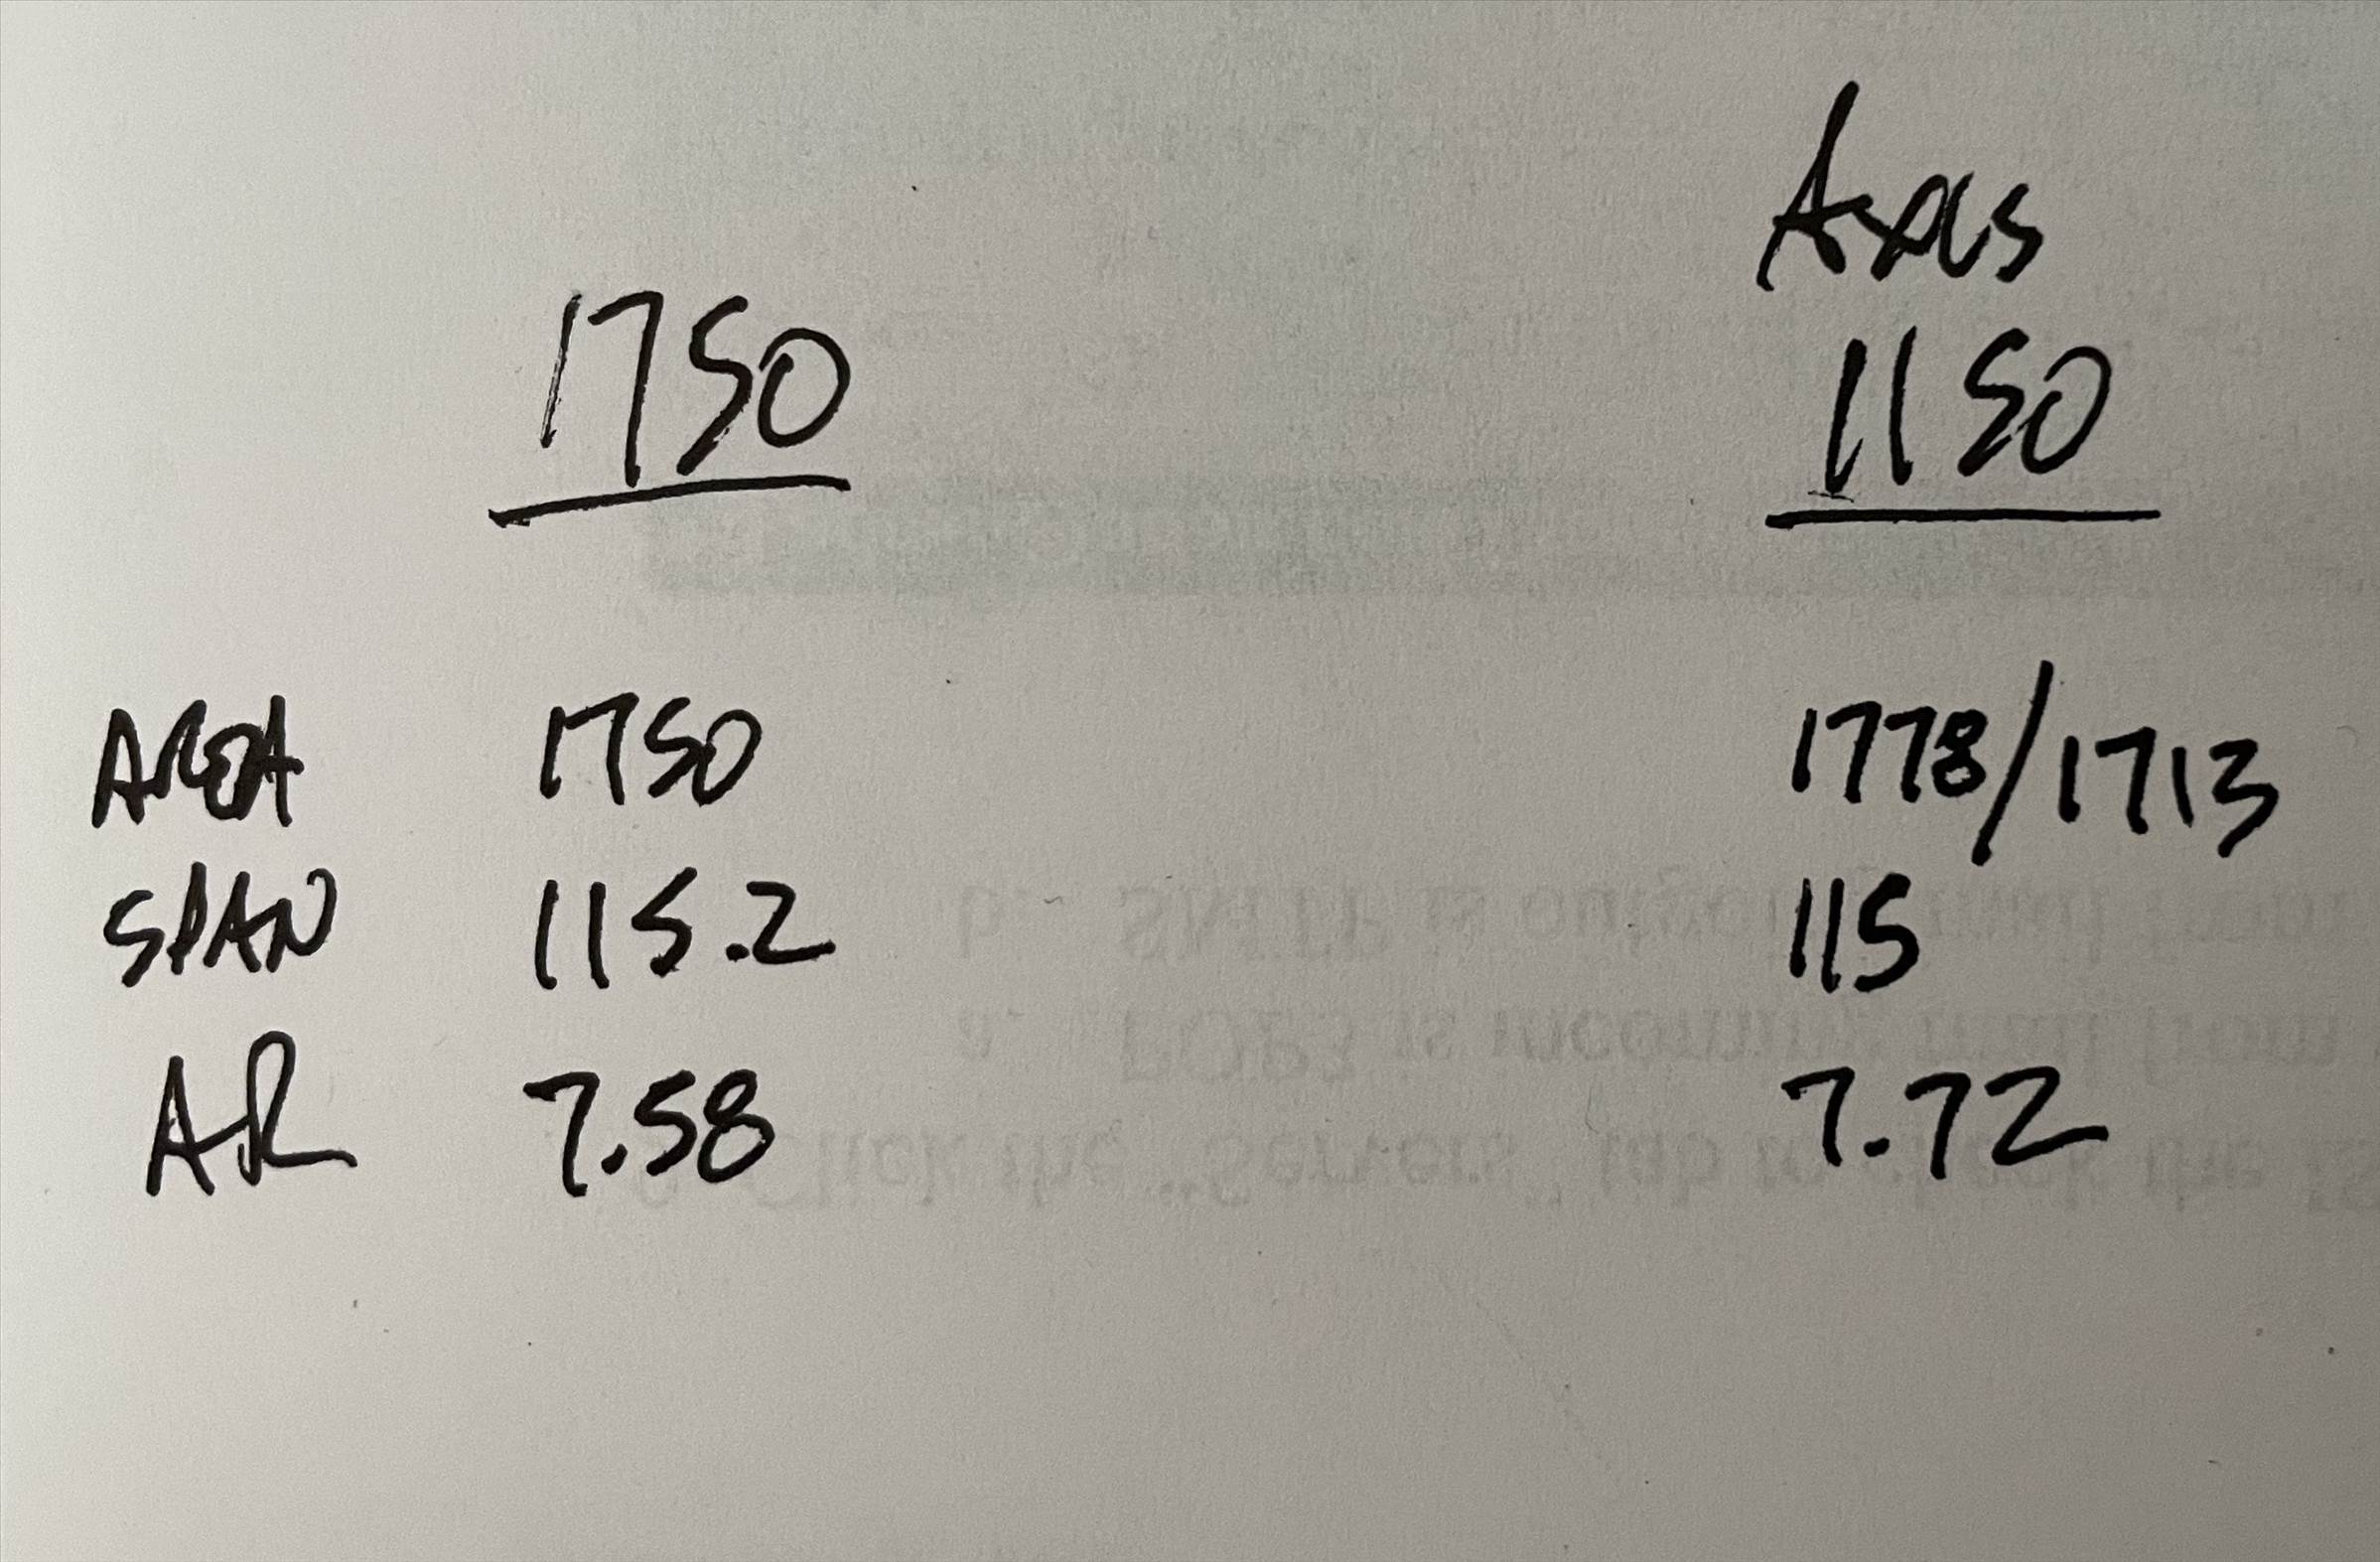 Axis
1750 1150
AREA 1750 1778/1713
SPAN 115.2 115
AR 7.58 7.72